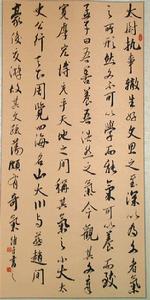 太尉執事轍生好為文思之至深以為文者氣
之所形然文不可以學而能氣可以養而致
孟子曰吾善養吾浩然之氣今觀其文章
寬厚宏博充乎天地之間稱其氣之小大太
史公行天下周覽四海名山大川與燕趙間
豪俊交游故其文疏蕩頗有奇氣 書